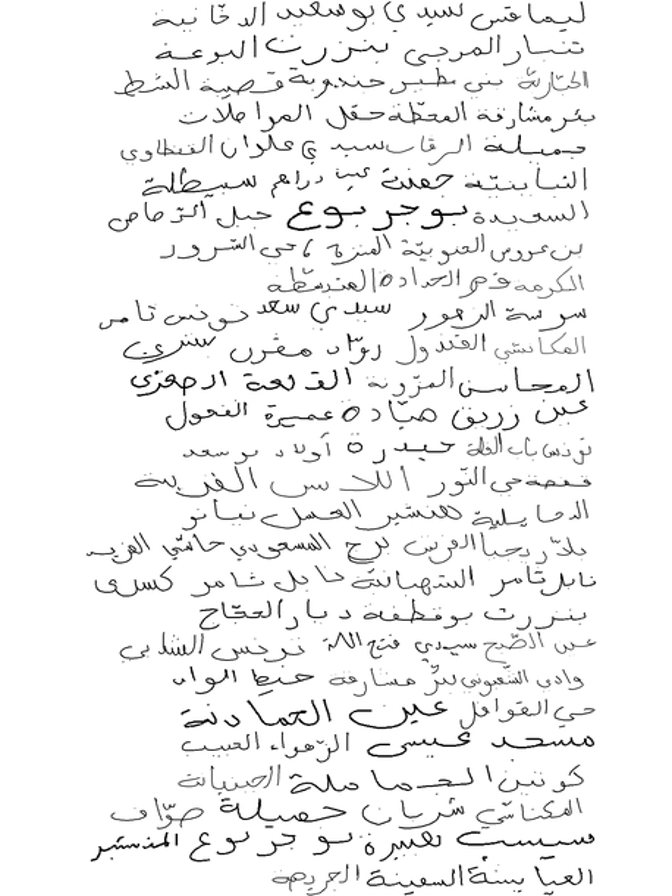 ليماقس سيدي بوسعيد الدخانية
تنبار المرجى بنزرت البوعة
الخبارية بني مطير جندوبة قصيبة الشط
بئر مشارقة المحطة حقل المواصلات
جميلة الرقاب سيدي علوان القنطاوي
النباينية جفنة عين دراهم سبيطلة
السعيدة بوجربوع جبل الرصاص
بن عروس الجنوبية المنزه ٤ حي السرور
الكرمة قصر الحدادة
سوسة الزهور سيدي سعد تونس ثامر
المكناسي القندول روّاد مقرن سيدي
المحاسن المزونة القلعة الصغرى
عين زريق صيّادة عميرة الفحول
تونس باب العلة حيدرة أولاد بوسعد
قفصة حي النور اللاس الغريبة
الدخايلية هنشير العسل نيانو
بلاّريجيا العرس برج المسعودي حاسي الفريد
نابل ثامر الشهبانية نابل ثامر كسرى
بنزرت بوقطفة ديار الحجّاج
عين الصّبح سيدي فتح الله تونس الشلبي
وادي الشعبوني بئر مشارقة خيط الواد
حي القوافل عين الحمادنة
مسجد عيسى الزهراء الحبيب
كونين الجماملة الحبيبانة
المكناسي شربان جميلة صوّاف
سبيبة هبيرة بوجربوع المنستير
العيايشة السفينة الجريصة